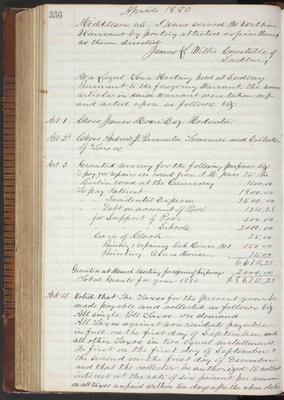 336
April 1880
Middlesex ss. I have served the within
Warrant by posting attested copies thereof
as therein directed
James L Willis Constable of
Sudbury
At a Legal Town Meeting held at Sudbury
Pursuant to the foregoing Warrant the
articles in said Warrant were taken up
and acted upon as follows viz
Art 1 Chose James Moore Esq Moderator
Art 2d Chose Andrew J. Parmenter Treasurer and Collector
of Taxes
Art. 3 Granted money for the following purposes viz
To pay for repairs on road from J. M. Jones to the
Berlin road at the Causeway 1100.00
To pay Interest 1800.00
" Incidental Expenses 1500.00
" Debt on account of Poor
for Support of Poor 500.00
" Schools 2000.00
Care of Clock 25.00
Painting & repairing Sch. House No 1 150.00
Painting Alms House 75.00
Granted at March Meeting for repairs of highways 2000.00
Total Grants for year 1880
Art 4 Voted that the Taxes for the present year be
made payable and collected as follows viz
All single Poll Taxes on demand
All Taxes against non residents payable
in full on the first day of September and
all other Taxes in two equal installments
the first on the first day of September &
the second on the first day of December
and that the collector be authorized to collect
interest at the rate of six percent per annum
on all taxes unpaid within ten days after the above dates